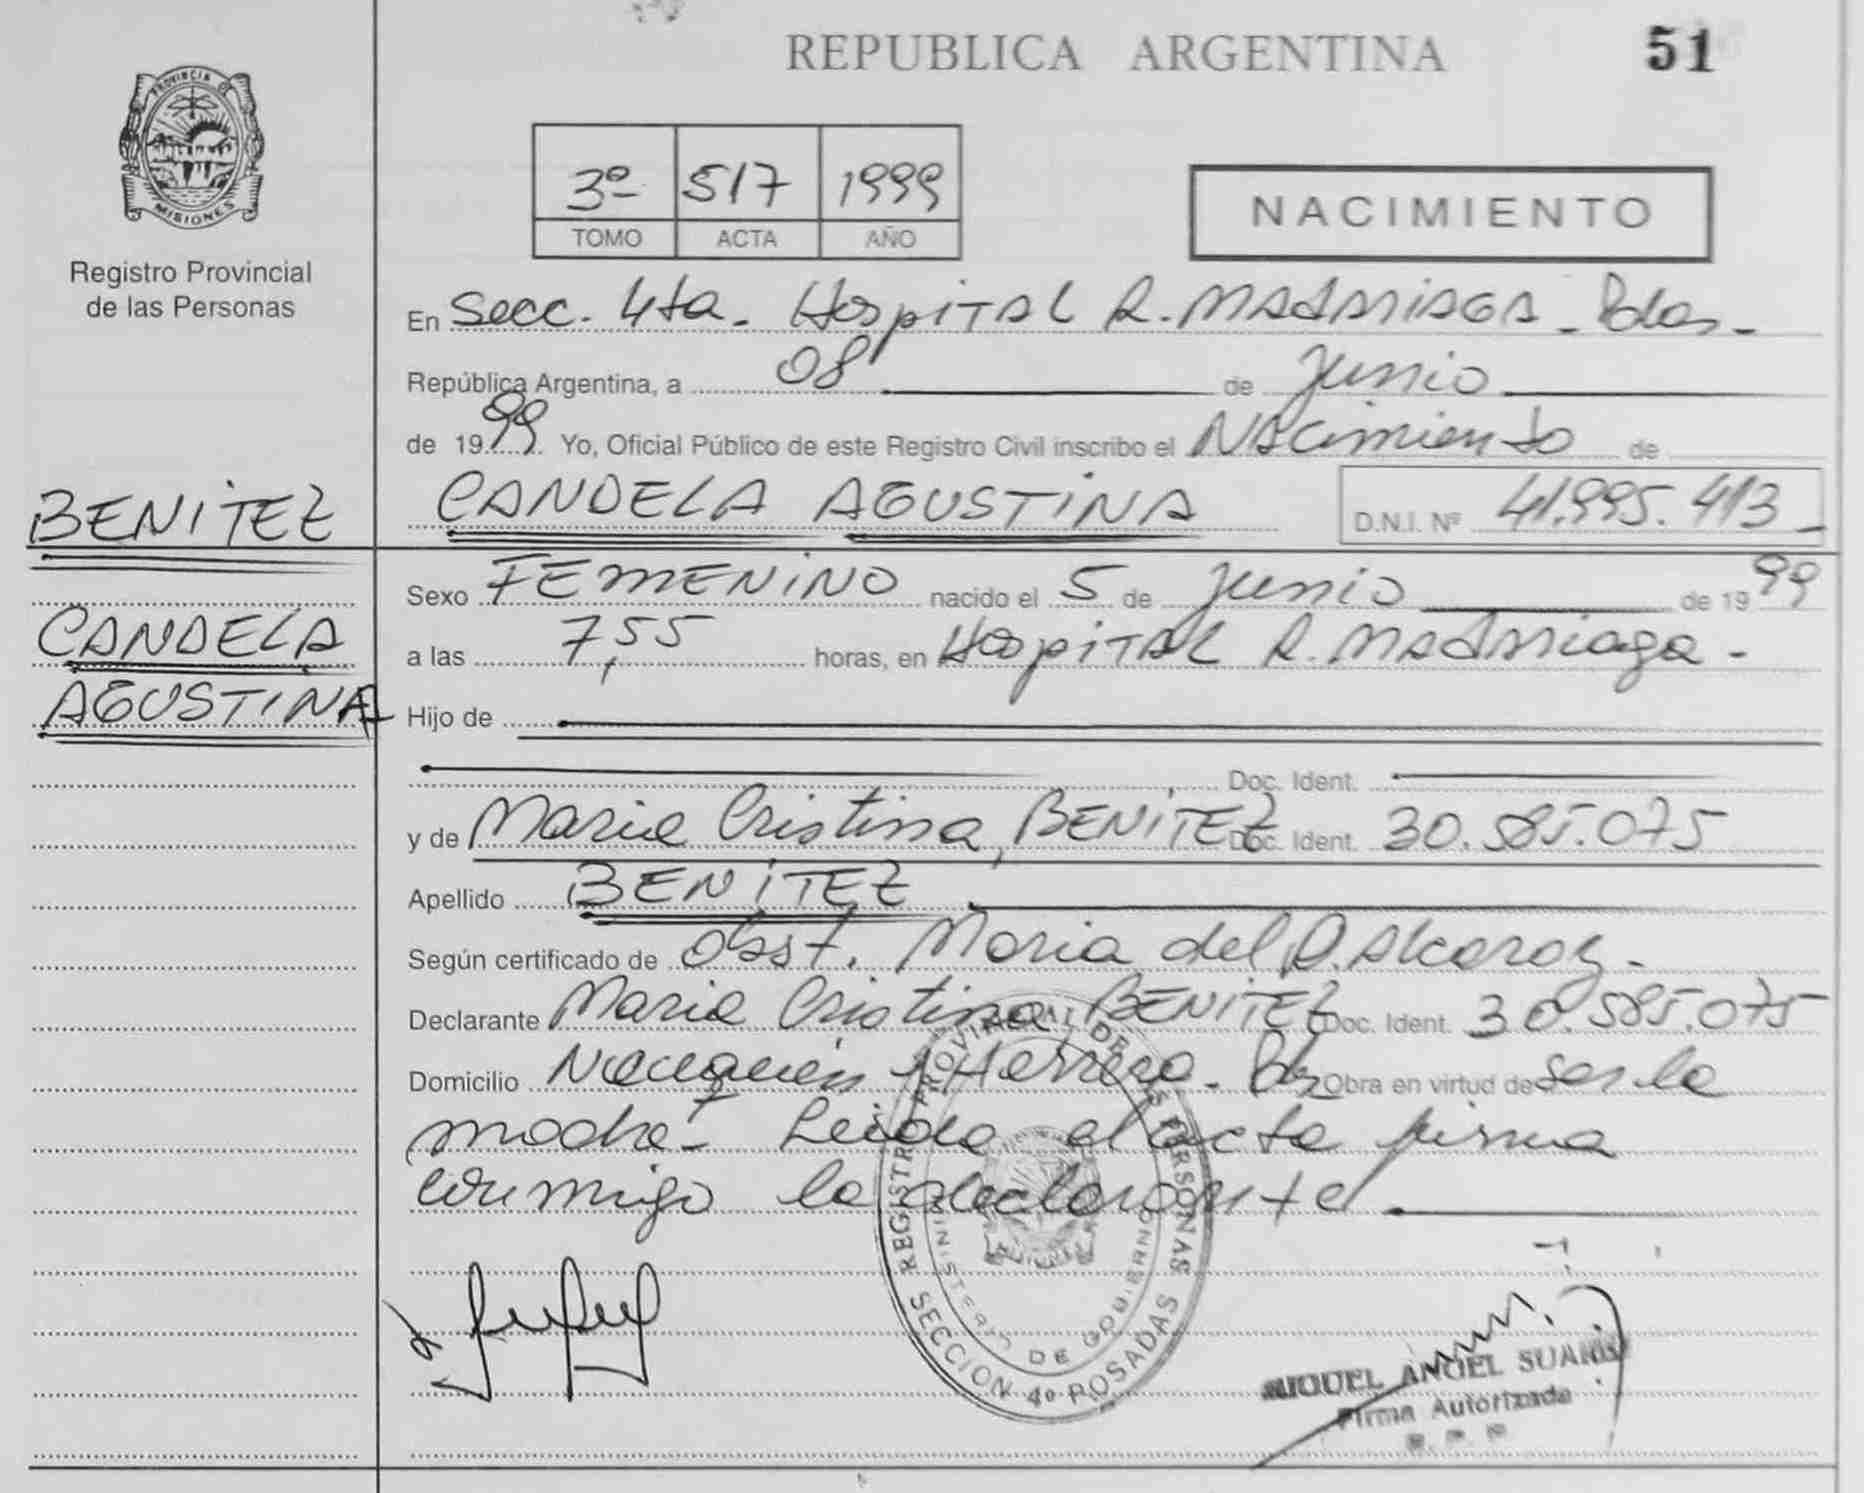 REPUBLICA ARGENTINA 51
PROVINCIA DE
MISIONES
Registro Provincial
de las Personas
3º 517 1999
TOMO ACTA AÑO
NACIMIENTO
En Secc. 4ta. Hospital R. Madariaga - Pdas -
República Argentina, a 08 de Junio
de 1999. Yo, Oficial Público de este Registro Civil inscribo el Nacimiento de
BENITEZ
CANDELA
AGUSTINA
CANDELA AGUSTINA D.N.I. Nº 41.995.413 -
Sexo FEMENINO nacido el 5 de Junio de 1999
a las 7,55 horas, en Hospital R. Madariaga -
Hijo de
Doc. Ident.
y de Maria Cristina, BENITEZ Doc. Ident. 30.585.075
Apellido BENITEZ
Según certificado de Obst. Maria del R. Alcaraz -
Declarante Maria Cristina BENITEZ Doc. Ident. 30.585.075
Domicilio Neuquén y Herrera - Pdas Obra en virtud de ser la
madre - Leida el acta firma
conmigo la declarante
REGISTRO PROVINCIAL DE LAS PERSONAS
MINISTERIO DE GOBIERNO
SECCION 4º POSADAS
MIGUEL ANGEL SUAREZ
Firma Autorizada
R. P. P.